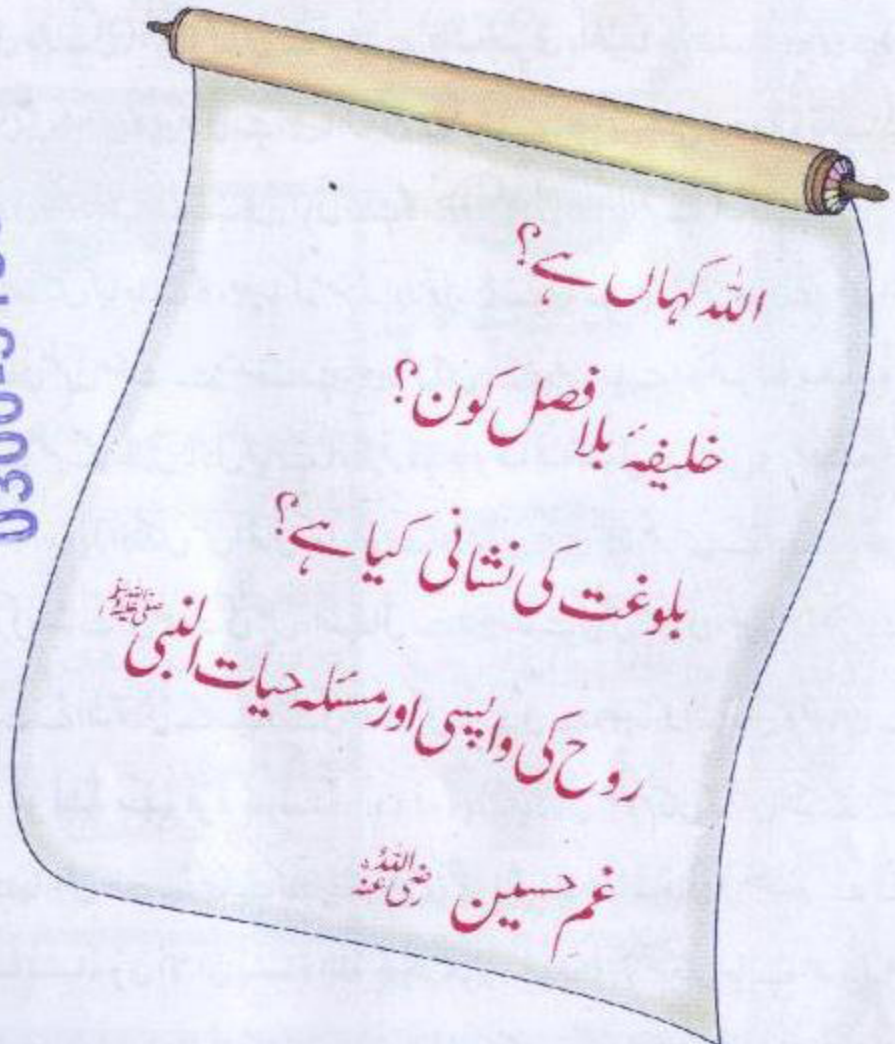 اللہ کہاں ہے؟
خلیفۂ بلا فصل کون؟
بلوغت کی نشانی کیا ہے؟
روح کی واپسی اور مسئلہ حیات النبی صلی اللہ علیہ وسلم
غمِ حسین رضی اللہ عنہ